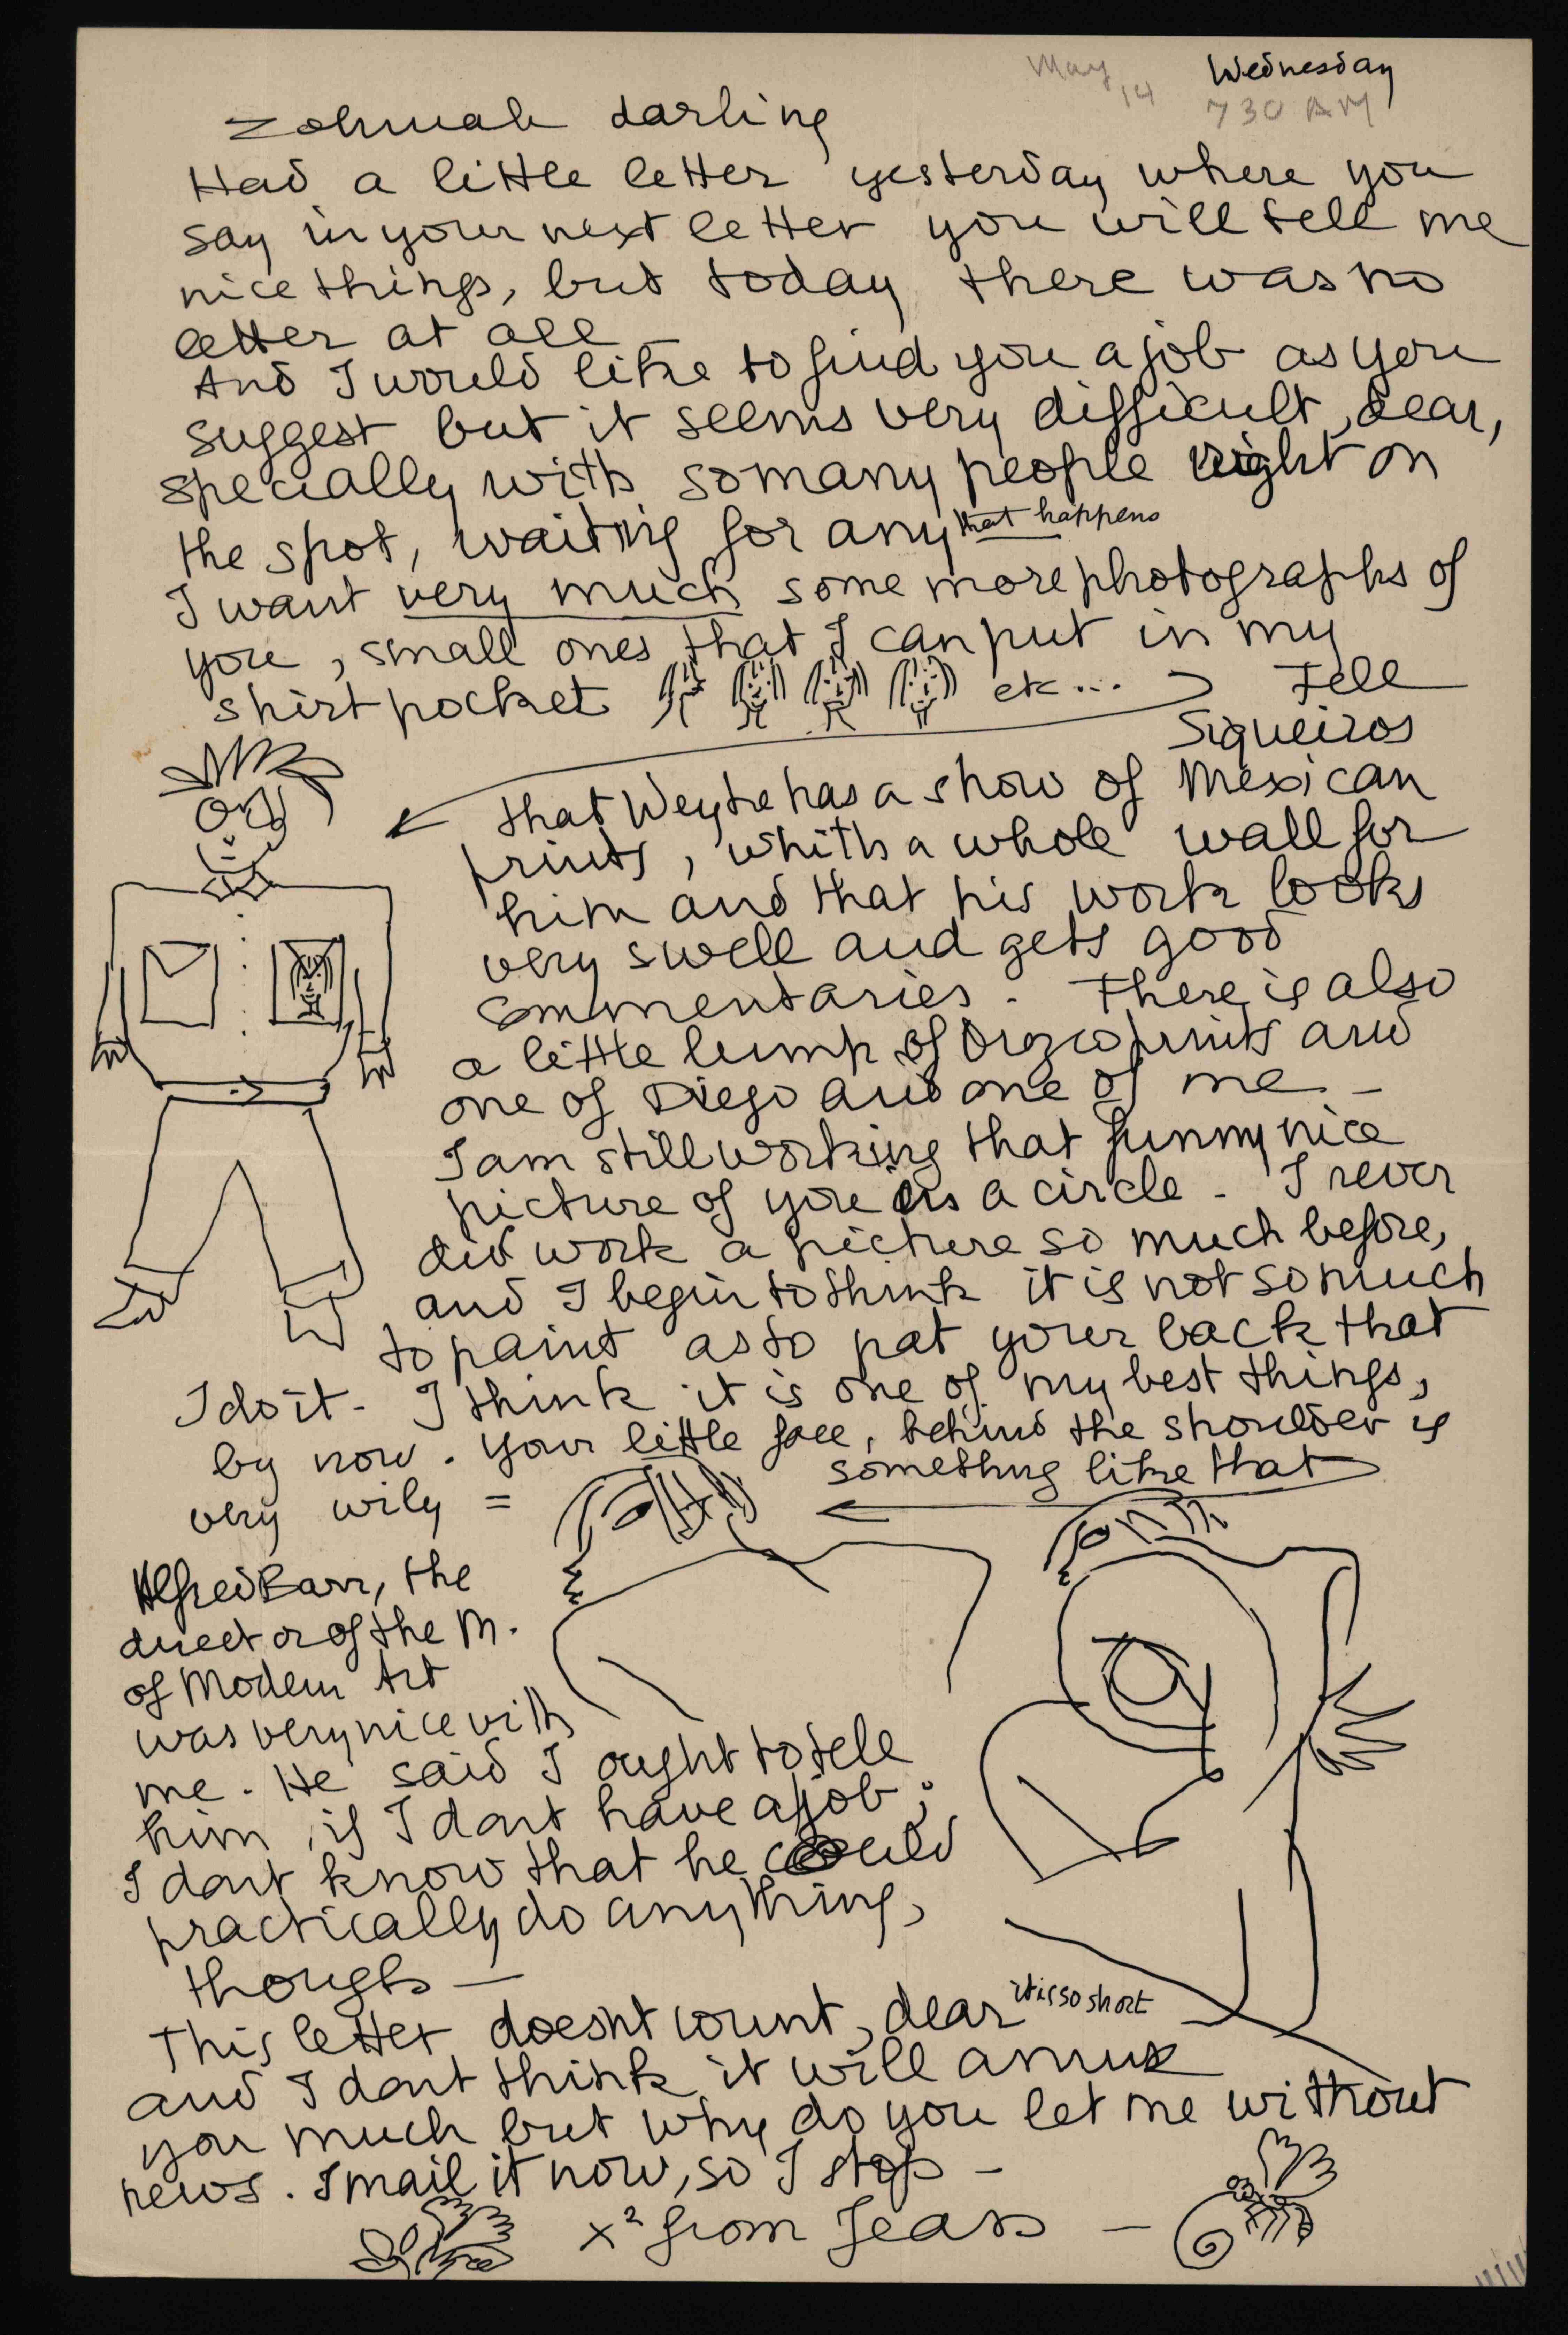 May 14 Wednesday
730 AM
Zohmah darling
Had a little letter yesterday where you
say in your next letter you will tell me
nice things, but today there was no
letter at all -
And I would like to find you a job as you
suggest but it seems very difficult, dear,
specially with so many people right on
the spot, waiting for any that happens
I want very much some more photographs of
you, small ones that I can put in my
shirt pocket etc... Tell
Siqueiros
that Weyhe has a show of Mexican
prints, whith a whole wall for
him and that his work looks
very swell and gets good
commentaries. There is also
a little lump of Orozco prints and
one of Diego and one of me -
I am still working that funny nice
picture of you as a circle - I never
did work a picture so much before,
and I begin to think it is not so much
to paint as to pat your back that
I do it - I think it is one of my best things,
by now. Your little face, behind the shoulder is
very wily = something like that
Alfred Barr, the
director of the M.
of Modern Art
was very nice with
me. He said I ought to tele
him, if I dont have a job;
I dont know that he could
practically do anything,
though —
This letter doesnt count, dear it is so short
and I dont think it will amuse
you much but why do you let me without
news. I mail it now, so I stop -
x² from Jean -